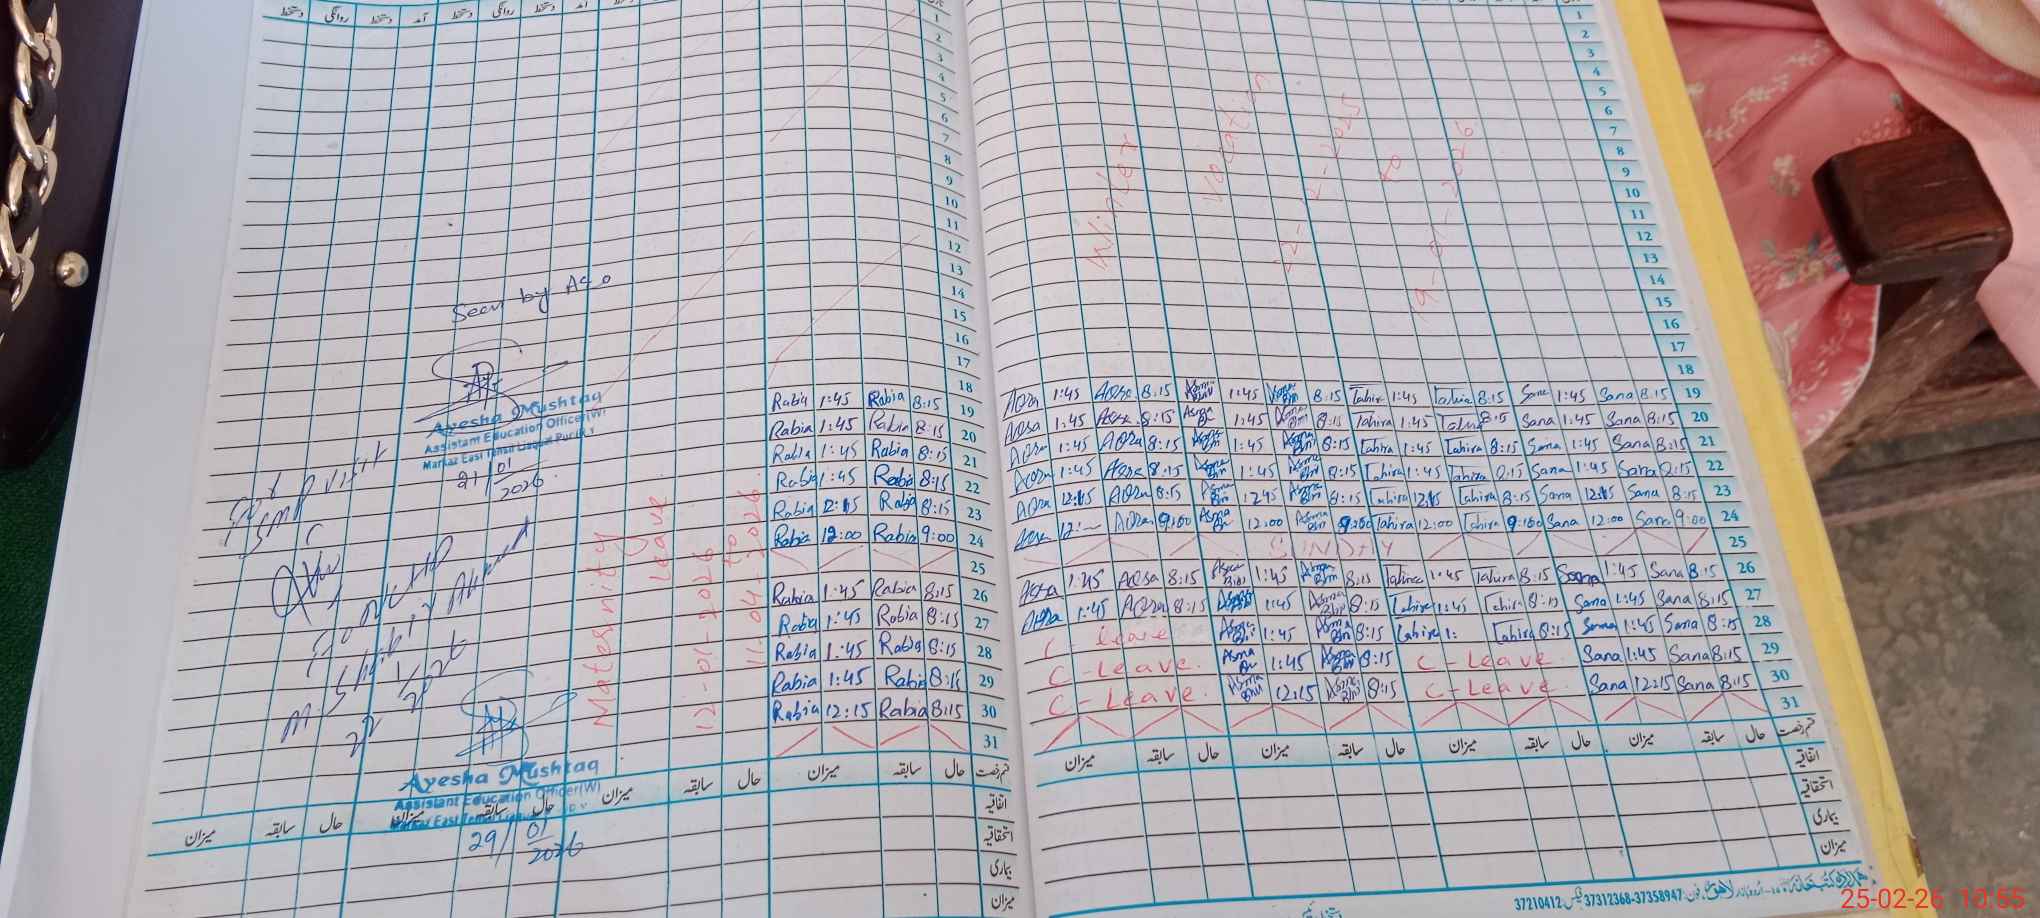 دستخط روانگی دستخط آمد دستخط روانگی دستخط آمد
1
2
3
4
5
6
7
8
9
10
11
12
13
14
15
16
17
18
Rabia 1:45 Rabia 8:15 19
Rabia 1:45 Rabia 8:15 20
Rabia 1:45 Rabia 8:15 21
Rabia 1:45 Rabia 8:15 22
Rabia 12:15 Rabia 8:15 23
Rabia 12:00 Rabia 9:00 24
25
Rabia 1:45 Rabia 8:15 26
Rabia 1:45 Rabia 8:15 27
Rabia 1:45 Rabia 8:15 28
Rabia 1:45 Rabia 8:15 29
Rabia 12:15 Rabia 8:15 30
31
Seen by AEO
Ayesha Mushtaq
Assistant Education Officer(W)
Markaz East Tehsil Liaquat Pur
21/01/2026
visit
Maternity
Leave
12-01-2026
to
11-04-2026
Ayesha Mushtaq
Assistant Education Officer(W)
Markaz East Tehsil
29/01/2026
میزان سابقہ حال میزان سابقہ حال میزان سابقہ حال میزان سابقہ حال قسم رخصت
اتفاقیہ
استحقاقیہ
بیماری
میزان
1
2
3
4
5
6
7
8
9
10
11
12
13
14
15
16
17
18
Winter Vacation
22-12-2025
to
19-01-2026
Aqsa 1:45 Aqsa 8:15 Asma Bibi 1:45 Asma Bibi 8:15 Tahira 1:45 Tahira 8:15 Sana 1:45 Sana 8:15 19
Aqsa 1:45 Aqsa 8:15 Asma Bibi 1:45 Asma Bibi 8:15 Tahira 1:45 Tahira 8:15 Sana 1:45 Sana 8:15 20
Aqsa 1:45 Aqsa 8:15 Asma Bibi 1:45 Asma Bibi 8:15 Tahira 1:45 Tahira 8:15 Sana 1:45 Sana 8:15 21
Aqsa 1:45 Aqsa 8:15 Asma Bibi 1:45 Asma Bibi 8:15 Tahira 1:45 Tahira 8:15 Sana 1:45 Sana 8:15 22
Aqsa 12:15 Aqsa 8:15 Asma Bibi 12:45 Asma Bibi 8:15 Tahira 12:15 Tahira 8:15 Sana 12:15 Sana 8:15 23
Aqsa 12:— Aqsa 9:00 Asma Bibi 12:00 Asma Bibi 9:00 Tahira 12:00 Tahira 9:00 Sana 12:00 Sana 9:00 24
SUNDAY 25
Aqsa 1:45 Aqsa 8:15 Asma Bibi 1:45 Asma Bibi 8:15 Tahira 1:45 Tahira 8:15 Sana 1:45 Sana 8:15 26
Aqsa 1:45 Aqsa 8:15 Asma Bibi 1:45 Asma Bibi 8:15 Tahira 1:45 Tahira 8:15 Sana 1:45 Sana 8:15 27
C - leave Asma Bibi 1:45 Asma Bibi 8:15 Tahira 1: Tahira 8:15 Sana 1:45 Sana 8:15 28
C - Leave. Asma Bibi 1:45 Asma Bibi 8:15 C - Leave. Sana 1:45 Sana 8:15 29
C - Leave. Asma Bibi 12:15 Asma Bibi 8:15 C - Leave. Sana 12:15 Sana 8:15 30
31
میزان سابقہ حال میزان سابقہ حال میزان سابقہ حال میزان سابقہ حال قسم رخصت
اتفاقیہ
استحقاقیہ
بیماری
میزان
37210412 فیکس 37312368-37358947 فون
25-02-26 10:55